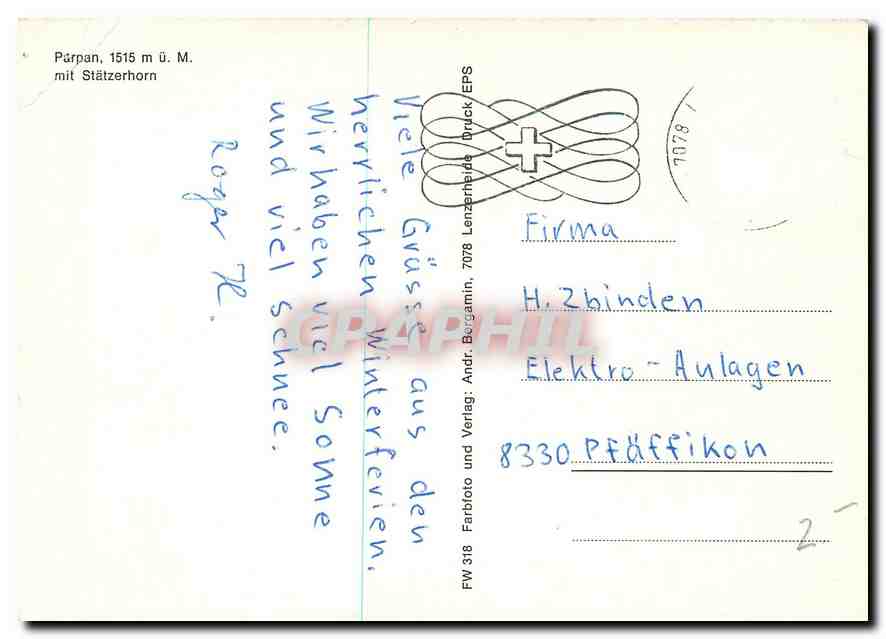 Parpan, 1515 m ü. M.
mit Stätzerhorn
Viele Grüsse aus den
herrlichen Winterferien.
Wir haben viel Sonne
und viel Schnee.
Roger H.
FW 318 Farbfoto und Verlag: Andr. Bergamin, 7078 Lenzerheide Druck EPS
7078
Firma
H. Zbinden
Elektro-Anlagen
8330 Pfäffikon
2-
CPAPHIL